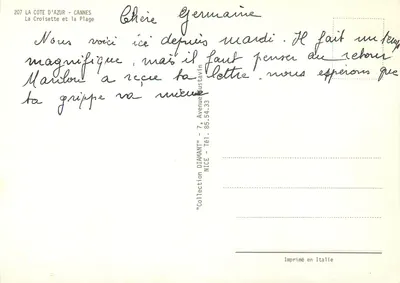 207 LA COTE D'AZUR - CANNES
La Croisette et la Plage
Chère Germaine
Nous voici ici depuis mardi. Il fait un temps
magnifique, mais il faut penser au retour
Marilou a reçue ta lettre. nous espérons que
ta grippe va mieux
"Collection DIAMANT" - 7, Avenue Gustavin
NICE - Tél. 85.54.33
Imprimé en Italie